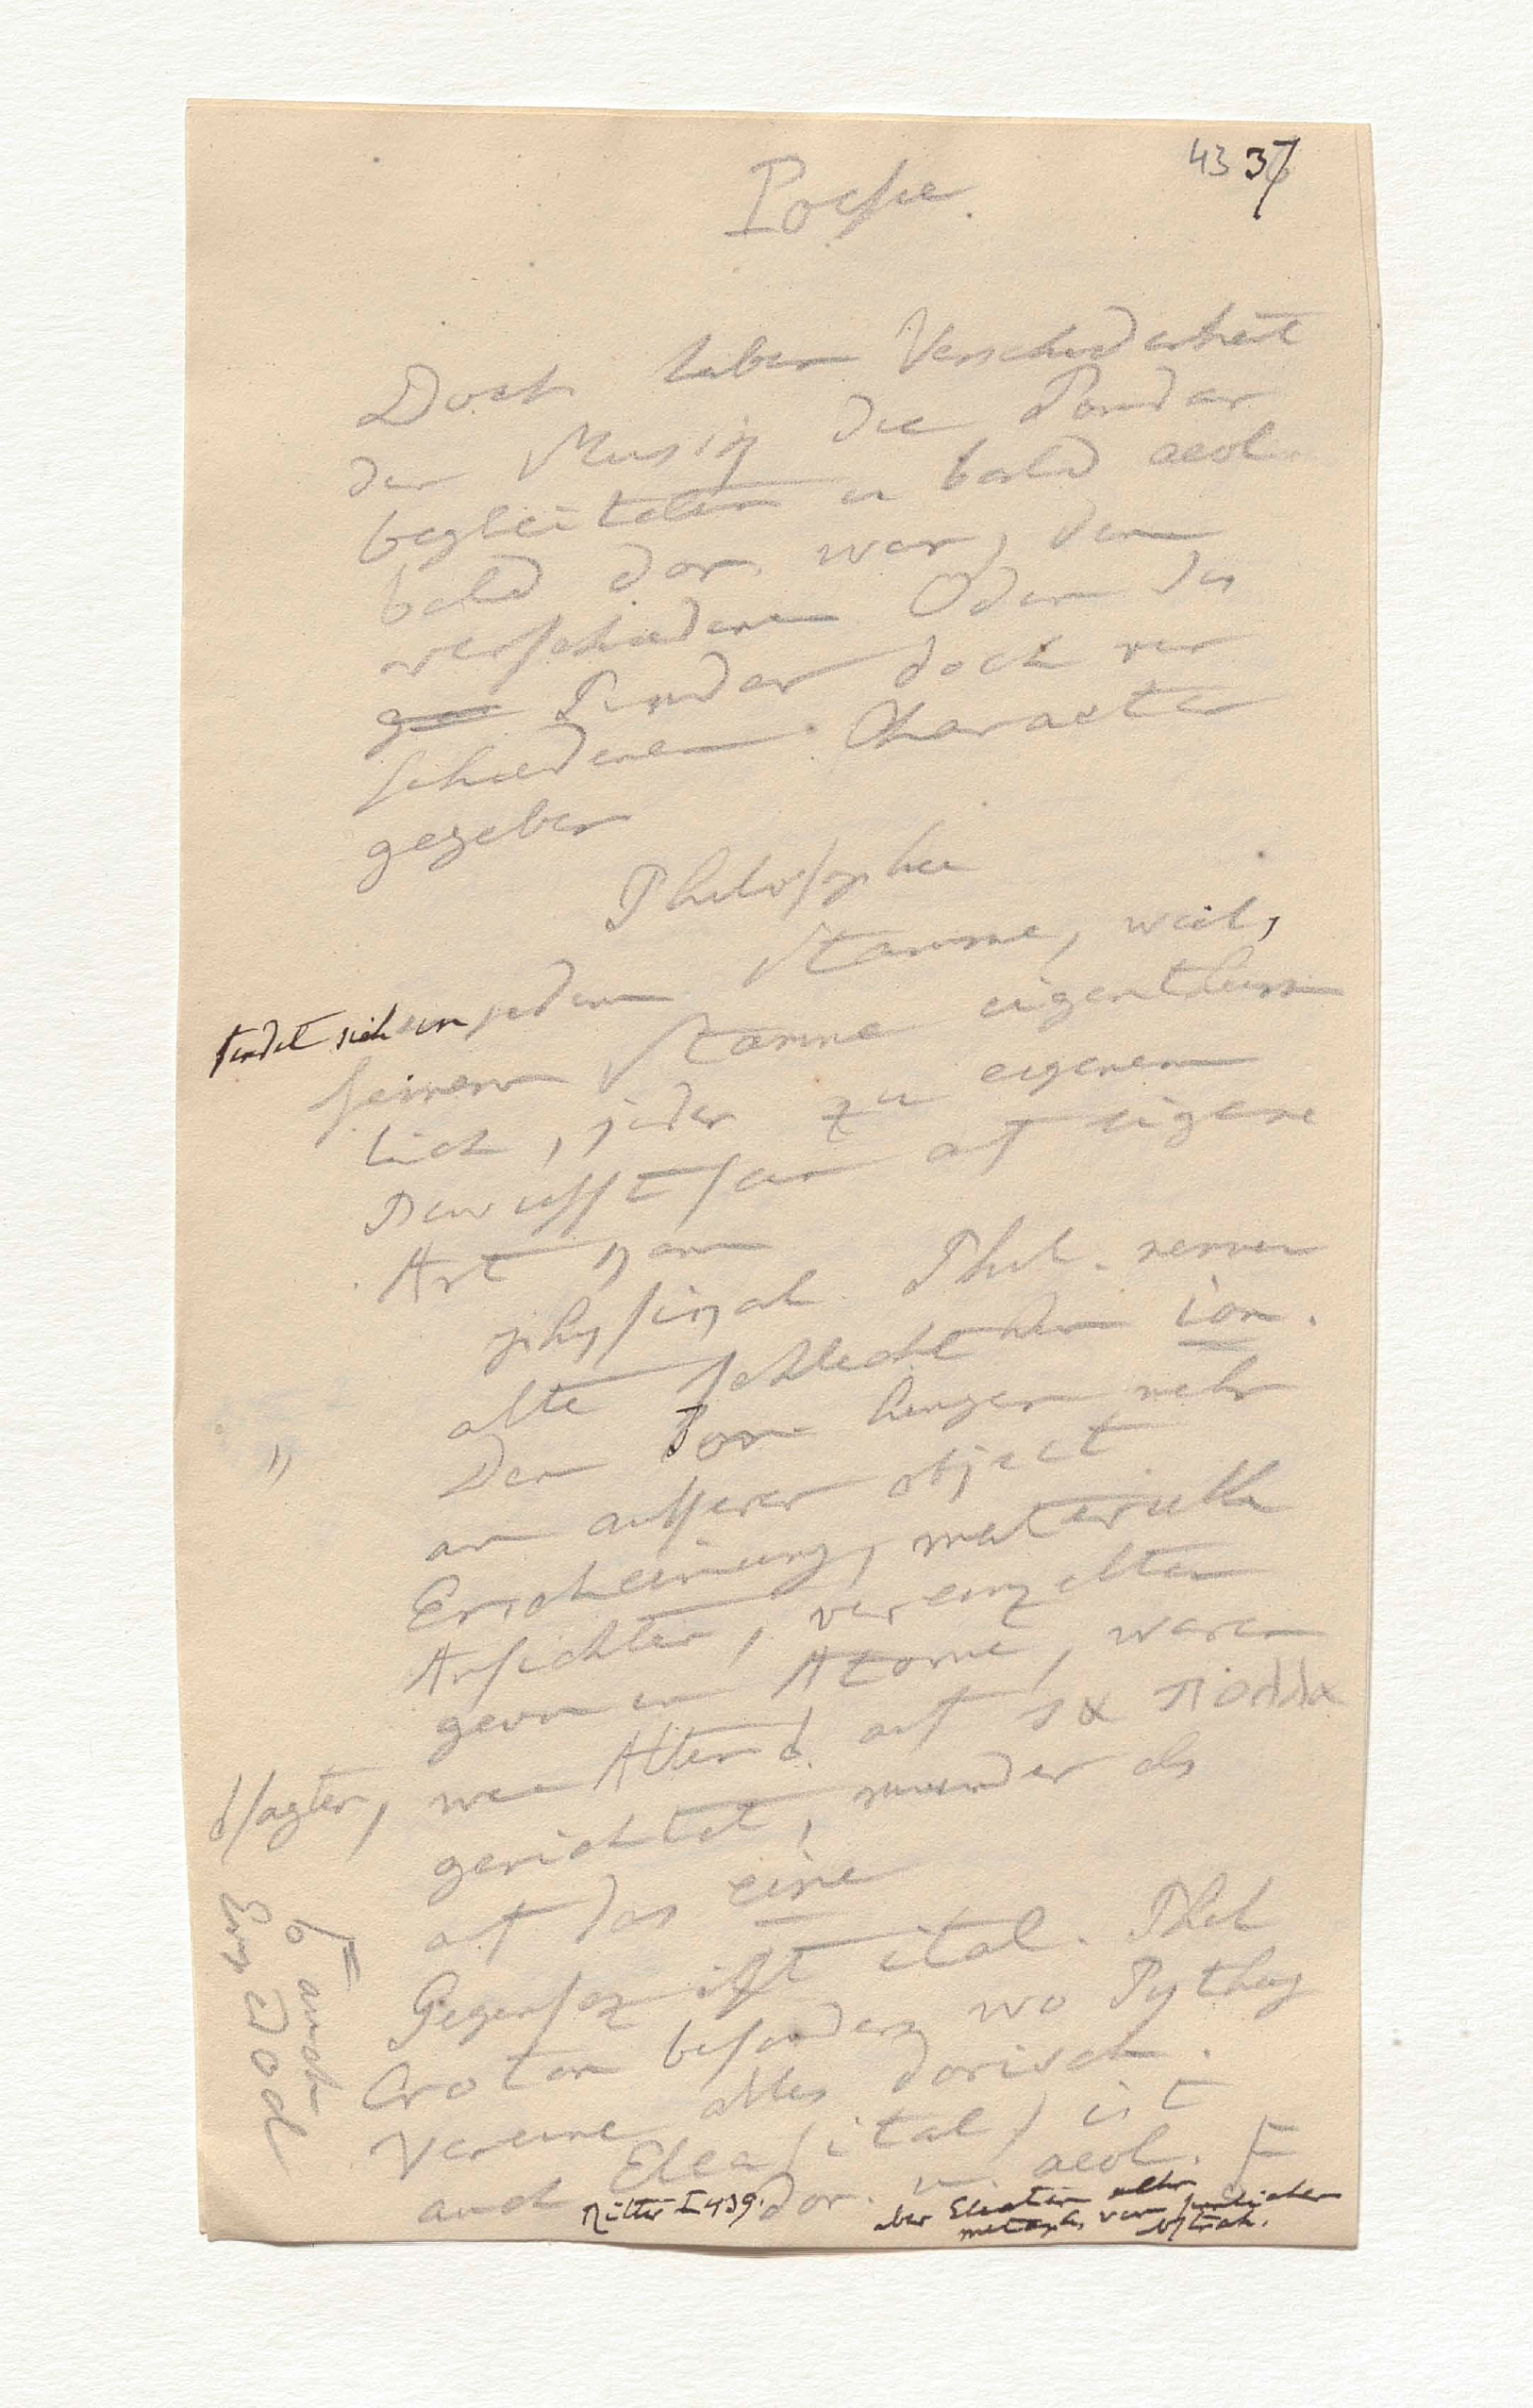 43 37
Poesie.
Doch haben Verschiedenheit
der Musik die Pindar
begleiteten u bald aeol.
bald dor. war, den
verschiedenen Oden des
Pindar doch ver
schiedenen Character
gegeben
Philosophie
findet sich in jedem Stamme, weil,
seinem Stamme eigenthüm
lich, jeder zu eigenem
Bewusstsein auf eigene
Art kam
physikal. Phil. nennen
alte schlechthin ion.
Den Ion hingen mehr
an äusserer object
Erscheinung, materielle
Ansichten, vereinzelten
gern in Atome, waren
sagten, wie Alten auf τα πολλα
gerichtet, minder als
auf das eine
Gegensaz ist ital. Phil
Croton besonders wo Pythag
Vereine alles dorisch.
auch Elea (ital) ist
dor. u. aeol.
Ritter I 439.
aber Eleaten mehr
metaph. von sinnlicher
btrch.
auch